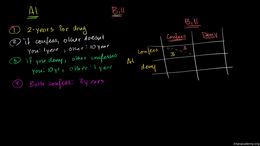 Al
Bill
1 2-years for drug
2 if confess, other doesn't
you: 1 year, other: 10 year
3 if you deny, other confesses
you: 10 yr, other: 1 year
4 Both confess: 3 years
Bill
Confess Deny
Al
confess 3 3
deny